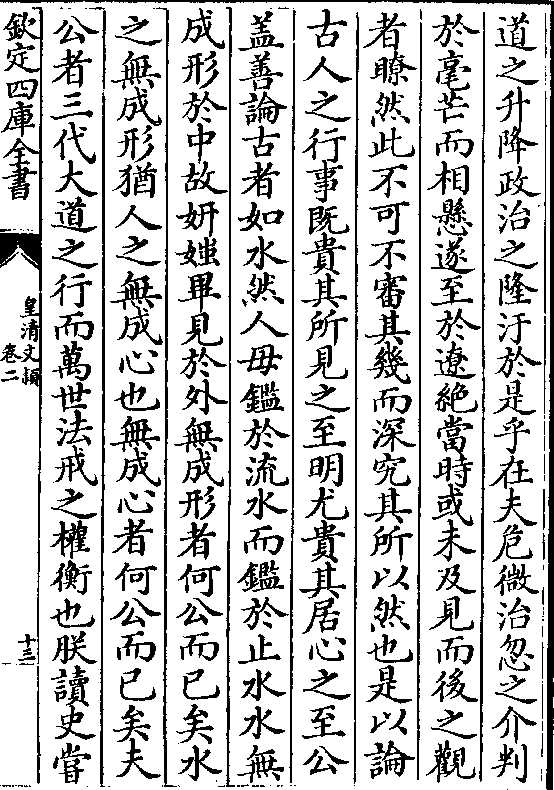 道之升降政治之隆汙於是乎在夫危微治忽之介判
於毫芒而相懸遂至於遼絶當時或未及見而後之觀
者瞭然此不可不審其幾而深究其所以然也是以論
古人之行事既貴其所見之至明尤貴其居心之至公
盖善論古者如水然人毋鑑於流水而鑑於止水水無
成形於中故妍媸畢見於外無成形者何公而已矣水
之無成形猶人之無成心也無成心者何公而已矣夫
公者三代大道之行而萬世法戒之權衡也朕讀史嘗
欽定四庫全書
皇清文頴
卷二
十三